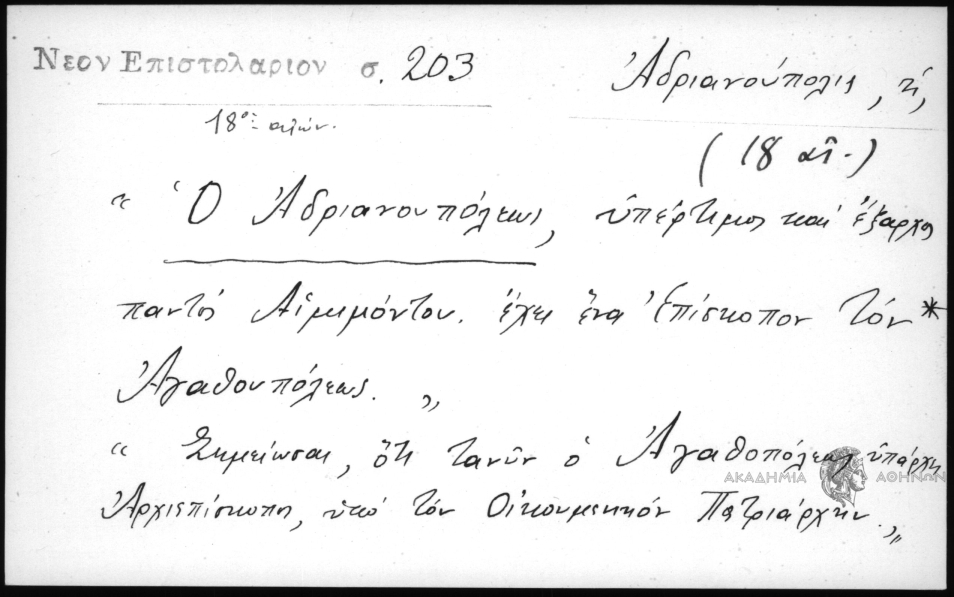 Νεον Επιστολαριον σ. 203
Ἀδριανούπολις, ἡ,
18ος αἰών.
(18 αἰ.)
“ Ὁ Ἀδριανουπόλεως, ὑπέρτιμος καὶ ἔξαρχος
παντὸς Αἱμιμόντου. ἔχει ἕνα Ἐπίσκοπον τόν *
Ἀγαθουπόλεως. „
“ Σημείωσαι, ὅτι τανῦν ὁ Ἀγαθοπόλεως ὑπάρχει
Ἀρχιεπίσκοπος, ὑπό τόν Οἰκουμενικόν Πατριάρχην. „
ΑΚΑΔΗΜΙΑ ΑΘΗΝΩΝ